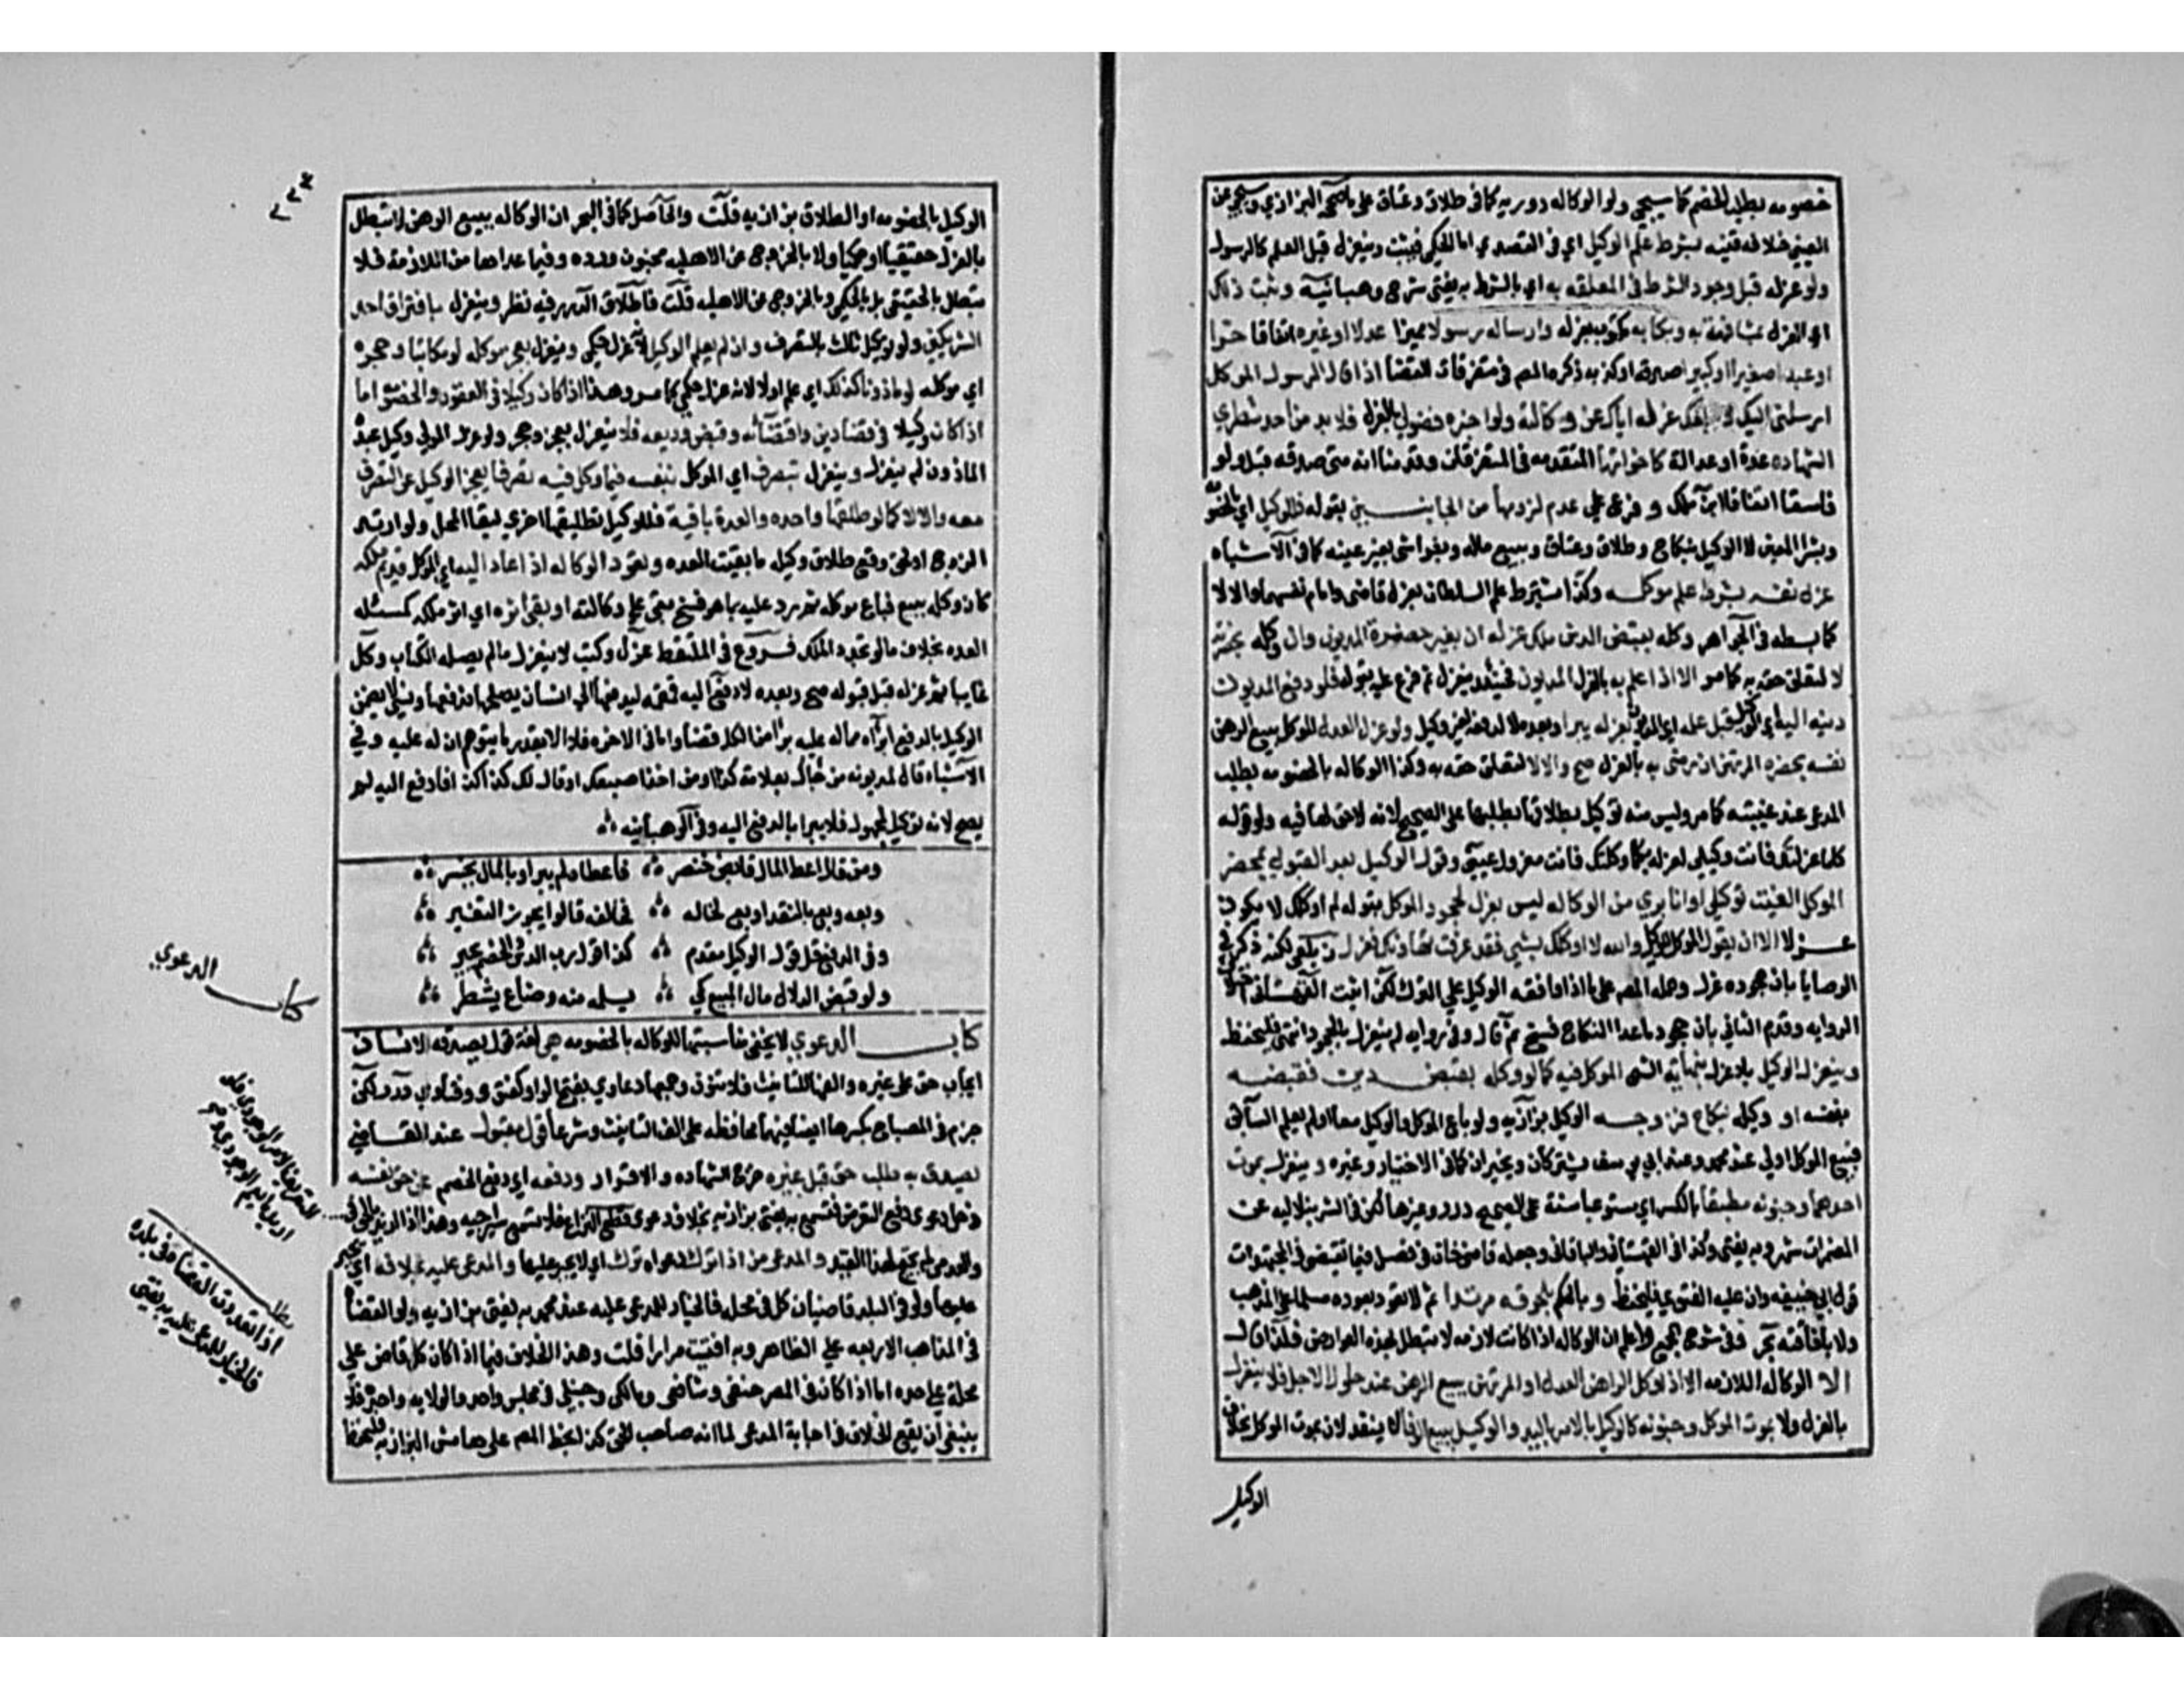 خصومه بطلب الخصم كما سيجي ولو الوكاله دوريه كما في طلاق وعتاق على ما صححه البزازي وسيجي عن
العيني خلافه فتنبه بشرط علم الوكيل اي في القصدي اما الحكمي فيثبت وينعزل قبل العلم كالرسول
ولو عزله قبل وجود الشرط في المعلقه به اي بالشرط به يفتى شرح وهبانيه ويثبت ذلك
اي العزل بمشافهته به وبكتابه مكتوب بعزله وارساله رسولا مميزا عدلا او غيره اتفاقا حرا
او عبدا صغيرا او كبيرا صدقه او كذبه ذكره المص في متفرقات القضا اذا قال الرسول الموكل
ارسلني اليك لابلغك عزله اياك عن وكالته ولو اخبره فضولي بالعزل فلا بد من احد شطري
الشهاده عددا او عدالة كاخواتها المتقدمه في المتفرقات وقدمنا انه متى صدقه قبل ولو
فاسقا اتفاقا ابن ملك وفرع على عدم لزومها من الجانبين بقوله فللوكيل اي بالخصومه
وبشرا المعين لا الوكيل بنكاح وطلاق وعتاق وبيع ماله وبشراء شي بغير عينه كما في الاشباه
عزل نفسه بشرط علم موكله وكذا يشترط علم السلطان بعزل قاضي وامام نفسهما والا لا
كما بسطه في الجواهر وكله بقبض الدين ملك عزله ان بغير حضرة المديون وان وكله بحضرته
لا لتعلق حقه به كما مر الا اذا علم به بالعزل المديون فحينئذ ينعزل ثم فرع عليه بقوله فلو دفع المديون
دينه اليه اي الوكيل قبل علمه اي المديون بعزله يبرا وبعده لا لدفعه لغير وكيل ولو عزل العدل الموكل ببيع الرهن
نفسه بحضره المرتهن ان رضي به بالعزل صح والا لا لتعلق حقه به وكذا الوكاله بالخصومه بطلب
المدعي عند غيبته كما مر وليس منه توكيله بطلاقها بطلبها على الصحيح لانه لا حق لها فيه ولو قوله
كلما عزلتك فانت وكيلي لعزله بكلما وكلتك فانت معزول عيني وقول الوكيل بعد القبول بمحضر
الموكل الغيت توكيلي او انا بري من الوكاله ليس بعزل كجحود الموكل بقوله لم اوكلك لا يكون
عزلا الا ان يقول الموكل للوكيل والله لا اوكلك بشي فقد عرفت تهاونك فعزل زيلعي لكنه ذكر في
الوصايا بان جحوده عزل وحمله المص على ما اذا وافقه الوكيل على الترك لكن اثبت القهستاني اختلاف
الروايه وقدم الثاني بان جحود ما عدا النكاح فسخ ثم قال وفي روايه لم ينعزل بالجحود انتهى فليحفظ
وينعزل الوكيل بلا عزل بنهاية الشي الموكل فيه كما لو وكله بقبض دين فقبضه
بنفسه او وكله بنكاح فزوجه الوكيل بزازيه ولو باع الموكل والوكيل معا او لم يعلم السابق
فبيع الموكل اولى عند محمد وعند ابي يوسف يشتركان ويخيران كما في الاختيار وغيره وينعزل بموت
احدهما وجنونه مطبقا بالكسر اي مستوعبا سنة على الصحيح درر وغيرها لكن في الشرنبلاليه عن
المضمرات شهر وبه يفتى وكذا في القهستاني والباقاني وجعله قاضي خان في فصل فيما يقضى في المجتهدات
قول ابي حنيفه وان عليه الفتوي فليحفظ وبالحكم بلحوقه مرتدا ثم لا تعود بعوده مسلما على المذهب
ولا بافاقته بحر وفي شرح المجمع واعلم ان الوكاله اذا كانت لازمه لا تبطل بهذه العوارض فلذا قال
الا الوكاله اللازمه الا اذا وكل الراهن العدل او المرتهن ببيع الرهن عند حلول الاجل فلا ينعزل
بالعزل ولا بموت الموكل وجنونه كالوكيل بالامر باليد والوكيل ببيع الوفا لا ينعزلان بموت الموكل بخلاف
الوكيل
الوكيل بالخصومه او الطلاق بزازيه قلت والحاصل كما في البحر ان الوكاله ببيع الرهن لا تبطل
بالعزل حقيقيا او حكميا ولا بالخروج عن الاهليه بجنون ورده وفيما عداها من اللازمة فلا
تبطل بالحقيقي بل بالحكمي وبالخروج عن الاهليه قلت فاطلاق الدرر فيه نظر وينعزل بافتراق احد
الشريكين ولو بتوكيل ثالث بالتصرف وان لم يعلم الوكيل لانه عزل حكمي وينعزل بعجز موكله لو مكاتبا وحجره
اي موكله لو ماذونا كذلك اي علم اولا لانه عزل حكمي كما مر وهذا اذا كان وكيلا في العقود والخصومه اما
اذا كان وكيلا في قضا دين واقتضائه وقبض وديعه فلا ينعزل بعجز وحجر ولو عزل المولى وكيل عبده
الماذون لم ينعزل وينعزل بتصرف اي الموكل بنفسه فيما وكل فيه تصرفا يعجز الوكيل عن التصرف
معه والا لا كما لو طلقها واحده والعدة باقية فللوكيل تطليقها اخرى لبقا المحل ولو ارتد
الزوج او لحق وقع طلاق وكيله ما بقيت العده وتعود الوكاله اذا عاد اليه اي الموكل قديم ملكه
كان وكله ببيع فباع موكله ثم رد عليه بما هو فسخ بقى على وكالته او بقى اثره اي اثر ملكه كمسئله
العده بخلاف ما لو تجدد الملك فروع في الملتقط عزل وكتب لا ينعزل ما لم يصله الكتاب وكل
غايبا ثم عزله قبل قبوله صح وبعده لا دفع اليه قمقمه ليدفعها الى انسان يصلحها فدفعها ونسي لا يضمن
الوكيل بالدفع ابراه مما له عليه برا من الكل قضا واما في الاخره فلا الا بقدر ما يتوهم ان له عليه وفي
الاشباه قال لمديونه من جاك بعلامة كذا ومن اخذ اصبعك او قال لك كذا فادفع اليه لم
يصح لانه توكيل لمجهول فلا يبرا بالدفع اليه وفي الوهبانيه
ومن قال اعط المال قابض خنصر فاعطاه لم يبرا وبالمال يخسر
وبعه وبع بالنقد او بع لخاله فخالفه قالوا يجوز التغير
وفي الدفع قل قول الوكيل مقدم كذا قول رب الدين والخصم يجبر
ولو قبض الدلال مال المبيع كي يسلمه منه وضاع يشطر
كتاب الدعوي لا يخفى مناسبتها للوكاله بالخصومه هي لغة قول يقصد به الانسان
ايجاب حق على غيره والفها للتانيث فلا تنون وجمعها دعاوي بفتح الواو كفتوى وفتاوي درر لكن
جزم في المصباح بكسرها ايضا فيهما محافظه على الف التانيث وشرعا قول مقبول عند القاضي
يقصد به طلب حق قبل غيره خرج الشهاده والاقرار ودفعه اي دفع الخصم عن حق نفسه
دخل دعوى دفع التعرض فتسمع به يفتى بزازيه بخلاف دعوى قطع النزاع فلا تسمع سراجيه وهذا اذا اريد بالحق
والمدعي من اذا ترك دعواه ترك اي لا يجبر عليها والمدعى عليه بخلافه اي يجبر
عليها ولو في البلد قاضيان كل في محله فالخيار للمدعى عليه عند محمد به يفتى بزازيه ولو القضاة
في المذاهب الاربعه على الظاهر وبه افتيت مرارا قلت وهذا الخلاف فيما اذا كان كل قاض على
محلة على حده اما اذا كان في المصر حنفي وشافعي ومالكي وحنبلي في مجلس واحد والولايه واحده فلا
ينبغي ان يقع الخلاف في اجابة المدعي لما انه صاحب الحق كذا بخط المص على هامش البزازيه فليحفظ
كتاب الدعوي
مطلب
اذا تعدد القضاة في بلدة
فالخيار للمدعى عليه به يفتى